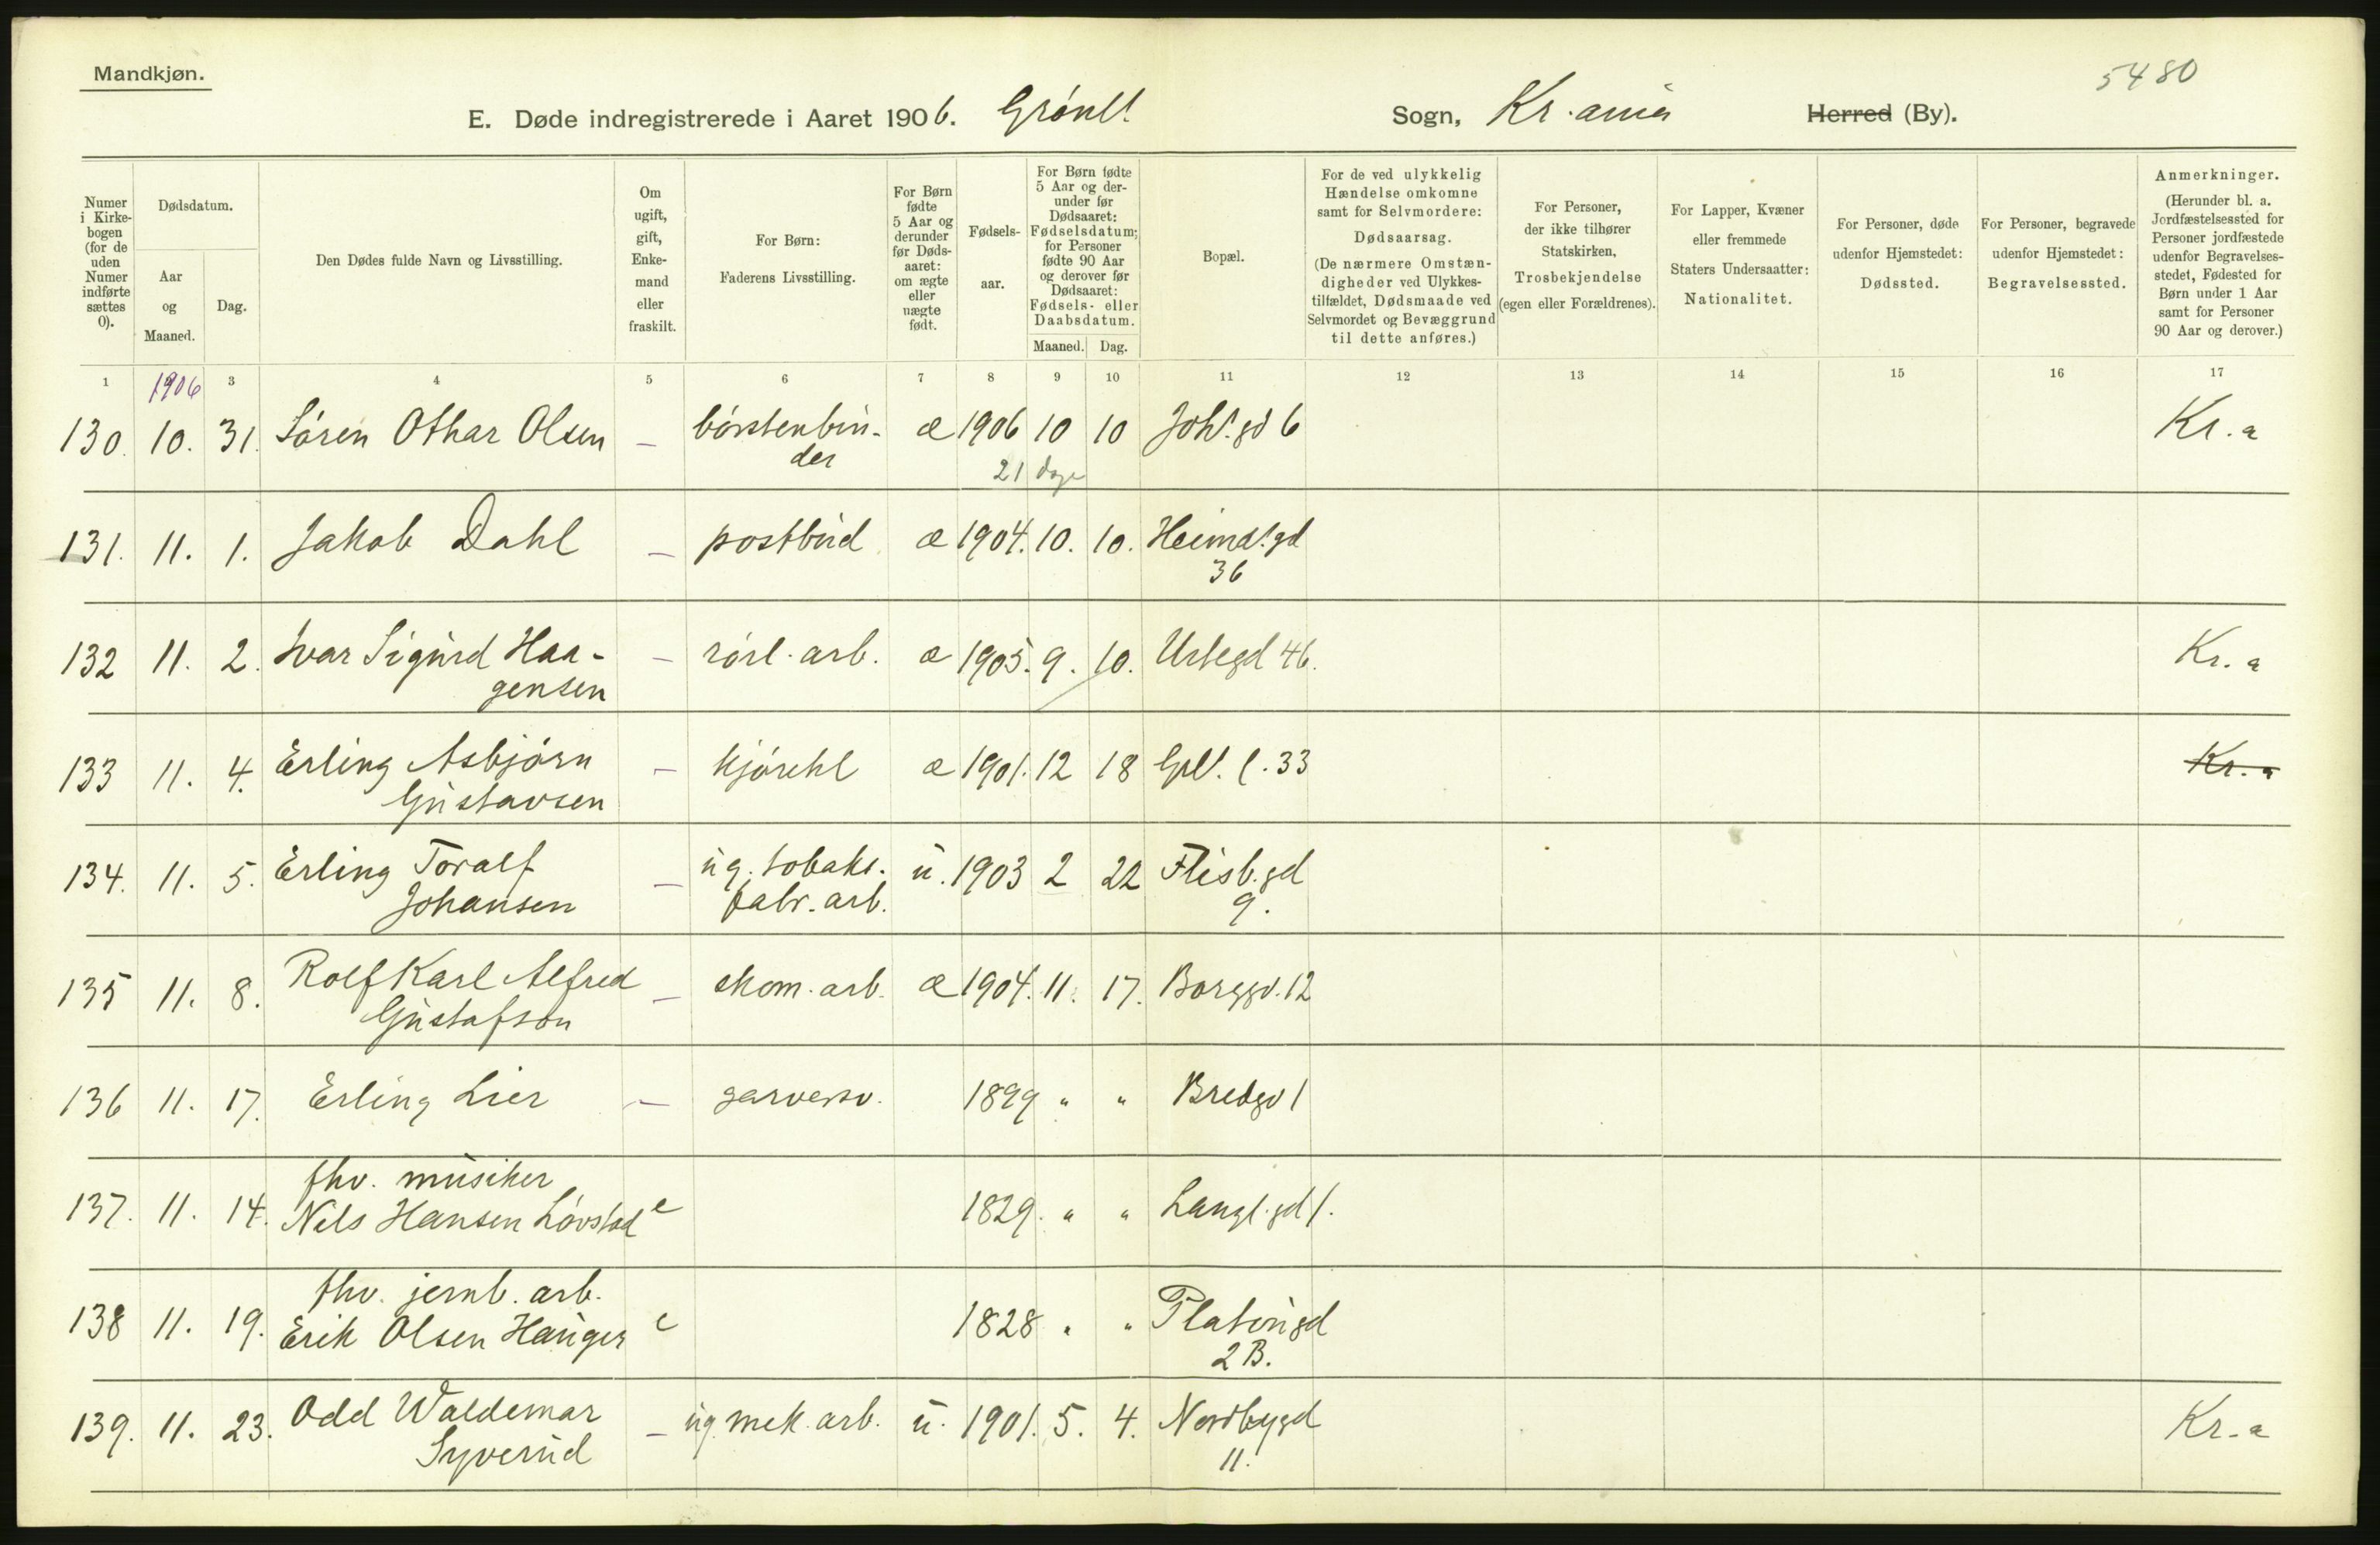 Mandkjøn.
5480
E. Døde indregistrerede i Aaret 1906. Grønl. Sogn, Kr.ania Herred (By).
Numer i Kirkebogen (for de uden Numer indførte sættes 0).
Dødsdatum.
Aar og Maaned.
Dag.
Den Dødes fulde Navn og Livsstilling.
Om ugift, gift, Enkemand eller fraskilt.
For Børn: Faderens Livsstilling.
For Børn fødte 5 Aar og derunder før Dødsaaret: om ægte eller uægte født.
Fødselsaar.
For Børn fødte 5 Aar og derunder før Dødsaaret: Fødselsdatum; for Personer fødte 90 Aar og derover før Dødsaaret: Fødsels- eller Daabsdatum.
Maaned. Dag.
Bopæl.
For de ved ulykkelig Hændelse omkomne samt for Selvmordere: Dødsaarsag. (De nærmere Omstændigheder ved Ulykkestilfældet, Dødsmaade ved Selvmordet og Bevæggrund til dette anføres.)
For Personer, der ikke tilhører Statskirken, Trosbekjendelse (egen eller Forældrenes).
For Lapper, Kvæner eller fremmede Staters Undersaatter: Nationalitet.
For Personer, døde udenfor Hjemstedet: Dødssted.
For Personer, begravede udenfor Hjemstedet: Begravelsessted.
Anmerkninger. (Herunder bl. a. Jordfæstelsessted for Personer jordfæstede udenfor Begravelsesstedet, Fødested for Børn under 1 Aar samt for Personer 90 Aar og derover.)
1 1906 3 4 5 6 7 8 9 10 11 12 13 14 15 16 17
130. 10. 31. Søren Othar Olsen — børstenbin- æ 1906 10 10 Joh.s gd 6 Kr. a
der 21 dage
131. 11. 1. Jakob Dahl — postbud æ 1904. 10. 10. Heimd.s gd
36
132 11. 2. Ivar Sigurd Haa- — rørl. arb. æ 1905. 9. 10. Urtegd 46. Kr. a
gensen
133 11. 4. Erling Asbjørn — kjørekl æ 1901. 12 18 Grl. l. 33 Kr. a
Gustavsen
134. 11. 5. Erling Toralf — ug. tobaks. u. 1903 2 22 Flisb.gd
Johansen fabr. arb. 9.
135 11. 8. Rolf Karl Alfred — skom. arb. æ 1904. 11. 17. Borggd. 12
Gustafson
136 11. 17. Erling Lier — garversv. 1899 " " Bredgd 1
fhv. musiker
137. 11. 14. Nils Hansen Løvstad e 1829. " " Langl. gd 1.
fhv. jernb. arb.
138 11. 19. Erik Olsen Hauger e 1828 " " Platougd
2 B.
139. 11. 23. Odd Waldemar — ug. mek. arb. u. 1901. 5. 4. Nordbygd
Syverud 11. Kr. a